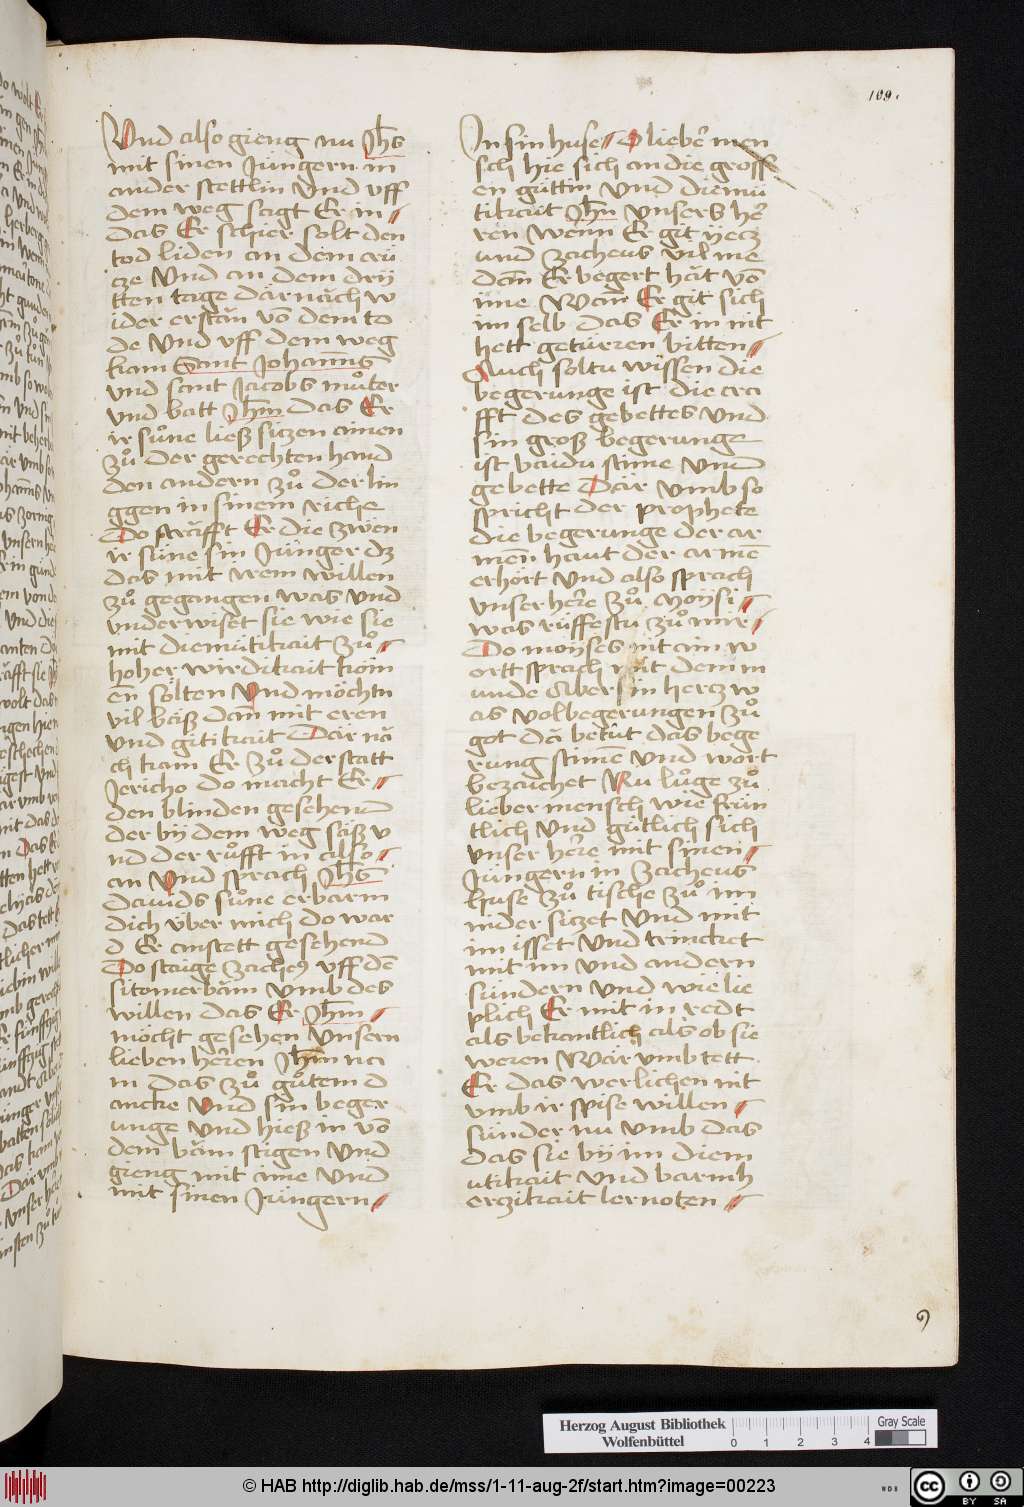 109.
Vnd also gieng nu Jh̄s
mit sinen Jüngern in
ander stettlin Vnd vff
dem weg sagt Er in
das Er schier solt den
tod liden an dem crü
cze Vnd an dem drÿ
tten tage dar nǎch w
ider erstǎn vō dem to
de Vnd vff dem weg
kam Sant Johan̄s
vnd sant Jacobs mů̊ter
vnd batt Jh̄m das Er
ir sůne ließ sitzen ainen
zů der gerechten hand
den andern zů der lin
ggen in sinem riche
Do strǎfft Er die zwen
ir süne sin Jünger dz
das mit irem willen
zů gegangen was vnd
vnderwiset sie wie sie
mit diemütikait zů
hoher wirdikait kom
en sölten Vnd möchtn
vil bas̈ß dan̄ mit eren
vnd gitikait Dar nǎ
ch kam Er zů der statt
Jericho do macht Er
den blinden gesehend
der bÿ dem weg sǎß v
nd der růfft in also
an Vnd sprach Jh̄s
dauids sůne erbarm
dich über mich do war
d Er anstett gesehend
Do staige zache9 vff dē
sitomerbǎm vmb des
willen das Er Jh̄m
möcht gesehen Vnsern
lieben herren Jh̄m na
m das zů gůtem d
ancke Vnd sin beger
unge Vnd hieß in vō
dem bǎm stigen Vnd
gieng mit ime Vnd
mit sinen Jüngern
In sin huse O lieber men
sch hie sich an die gross
en güttin Vnd diemü
tikait Jh̄u Vnsers he͂
ren Wenn Er git ÿecz
und Zacheus vil me
dan̄ Er begert hǎt vō
ime Wan̄ Er git sich
im selb das Er in nit
hett getürren bitten
Auch soltu wissen die
begerunge ist die cra
fft des gebettes Vnd
sin groß begerunge
ist baidu stime Vnd
gebette Dar vmb so
spricht der prophete
die begerunge der ar
men̄ haut der armē
erhört Vnd also sprach
vnser herre zů Moÿsi
was rüffestu zů mir
Do moÿses nit ain w
ort sprach mit dem m
unde Aber sin hercz w
as volbegerungen zů
got dǎ betüt das bege
rung stimē Vnd wort
bezaichet Nu lůge zů
lieber mensch wie frün
tlich Vnd gütlich sich
vnser herre mit sinen
Jüngern in Zacheus
huse zů tische zů im
nider sitzet Vnd mit
im isset Vnd trincket
mit im Vnd andern
sündern Vnd wie lie
plich Er mit in redt
als bekantlich als ob sie
weren War vmb tett
Er das werlichen nit
vmb ir spise willen
sünder nu vmb das
das sie bÿ im diem
utikait Vnd barmh
erczikait lernoten
Herzog August Bibliothek
Wolfenbüttel
0 1 2 3 4
Gray Scale
© HAB http://diglib.hab.de/mss/1-11-aug-2f/start.htm?image=00223
WDB
cc BY SA